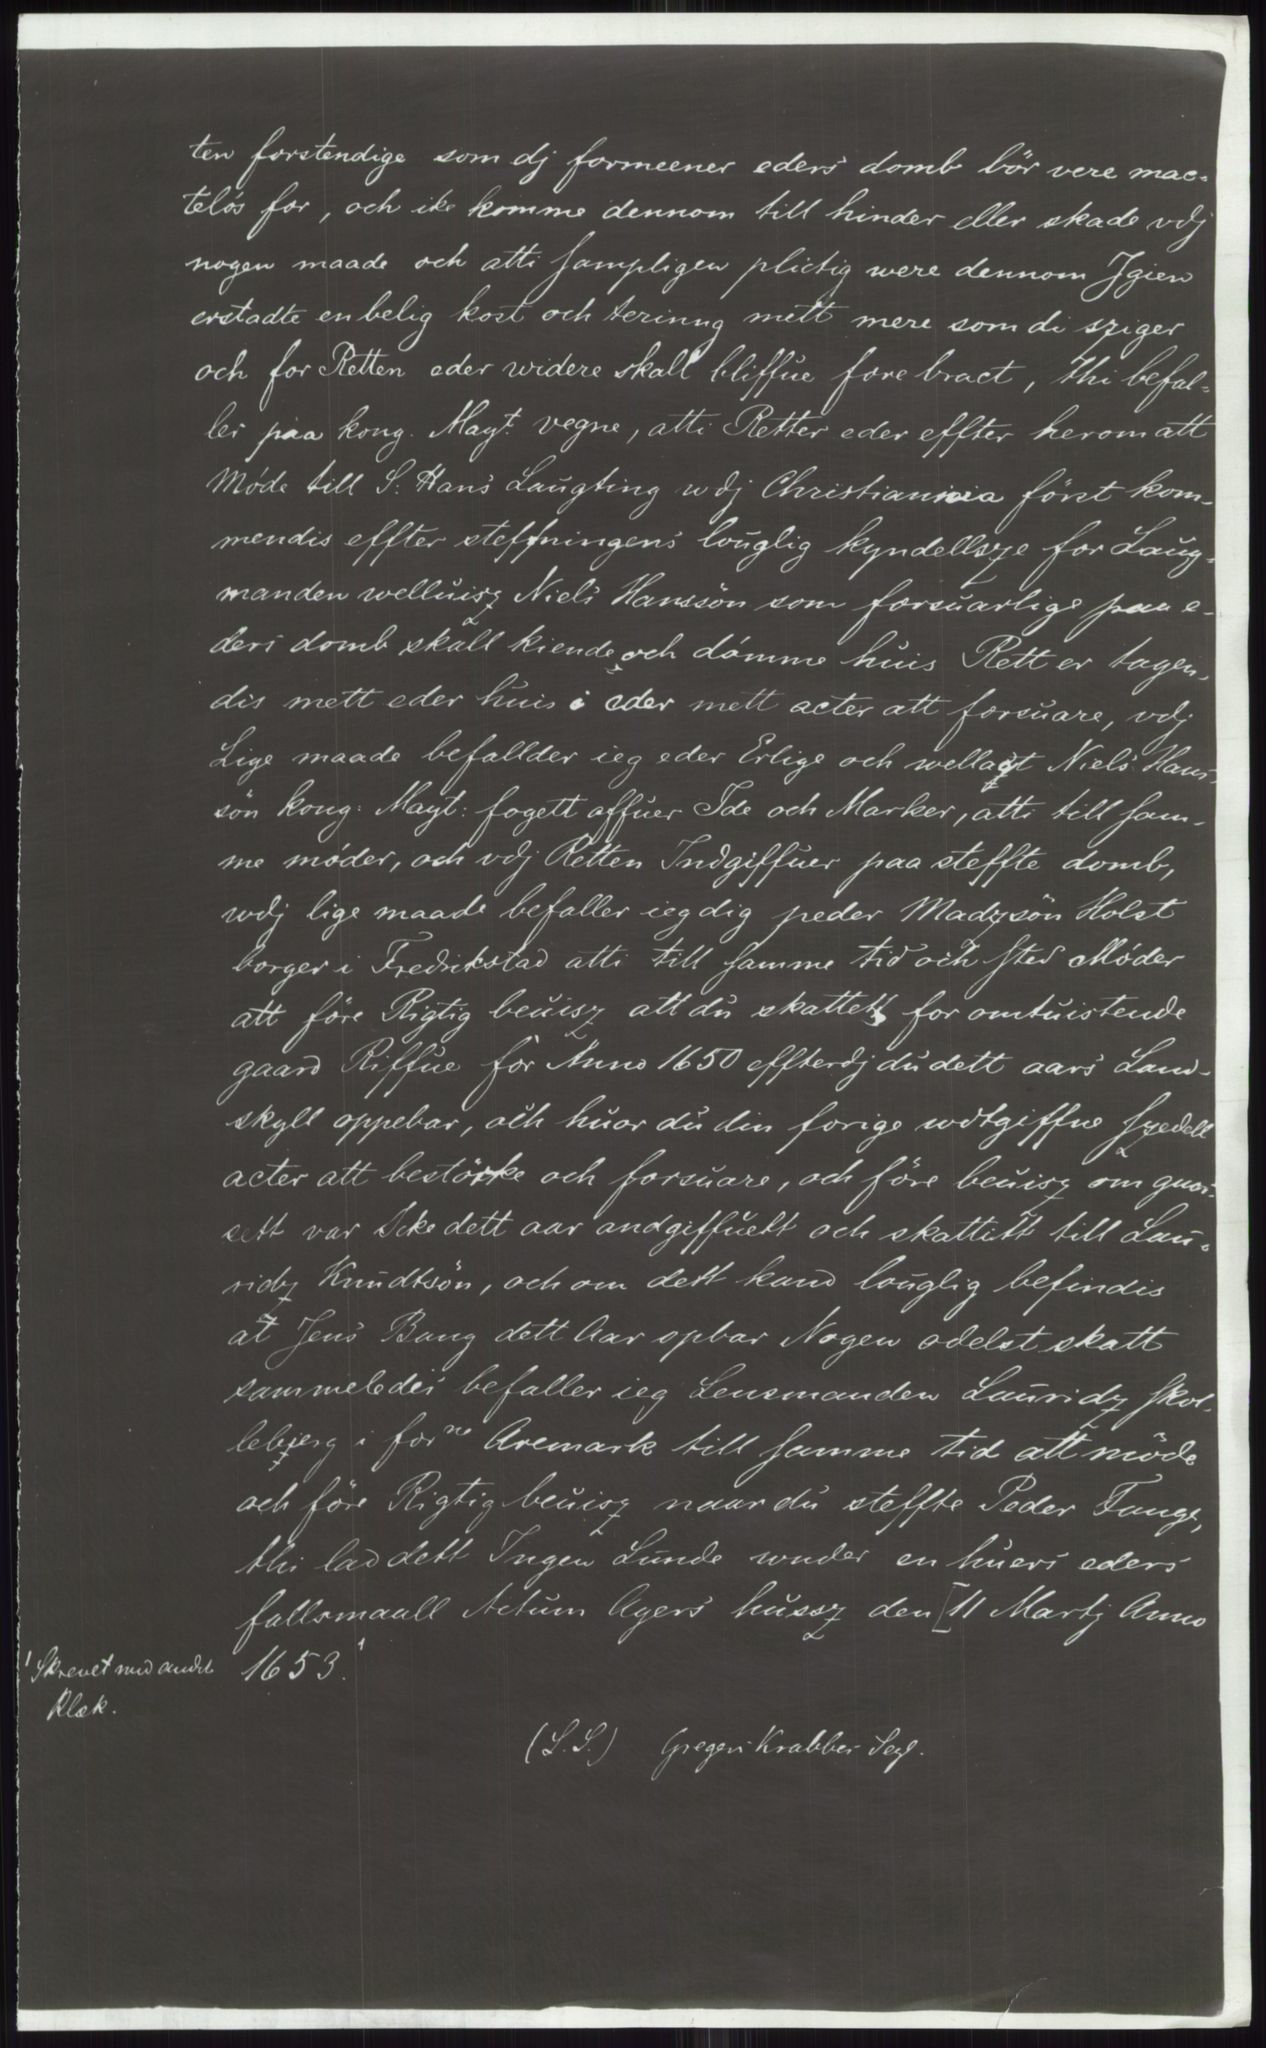 ten forstendige som dj formeener eders domb bör vere mac-
telös for, och ike komme dennom till hinder eller skade vdj
nogen maade och atti sampligen plictig were dennom Jgien
erstadte en belig kost och terinng mett mere som di sziger
och for Retten eder widere skall bliffue fore bract, thi befal-
ler paa kong. Mayt. vegne, atti Retter eder effter herom att
Møde till S: Hans Laugting udj Christiania först kom-
mendis effter steffningens louglig kyndellsze for Laug-
manden welluisz Niels Hanssön som forsuarlige paa e-
ders domb skall kiende och dømme huis Rett er tagen-
dis mett eder huis i eder mett acter att forsuare, vdj
Lige maade befallder ieg eder Erlige och wellagt Niels Hans-
sön kong: Mayt: fogett offuer Ide och Marker, atti till sam-
me møder, och vdj Retten Indgiffuer paa steffte domb,
wdj lige maade befaller ieg dig peder Madzsön Holst
borger i Fredrikstad atti till samme tid och sted Møder
att føre Rigtig beuisz att du skattett for omtuistende
gaard Riffue för Anno 1650 effterdj du dett aars Land-
skyll oppebar, och huor du din forige wdtgiffne szedell
acter att bestörke och forsuare, och före beuisz om guor-
sett var Icke dett aar andgiffuett och skattitt till Lau-
ridz Knudtsön, och om dett kand louglig befindis
at Jens Bang dett Aar opbar Nogen odelst skatt
sammeledes befaller ieg Lensmanden Lauridz Skol-
lebjerg i forne Aremark till samme tid att møde
och före Rigtig beuisz naar du steffte Peder Fange,
thi lad dett Ingen Lunde wnder en huers eders
fallsmaall Actum Agers hussz den [11 Martj Anno
1653.¹
¹ Skrevet med andet
Blæk.
(L.S.) Gregers Krabbes Segl.